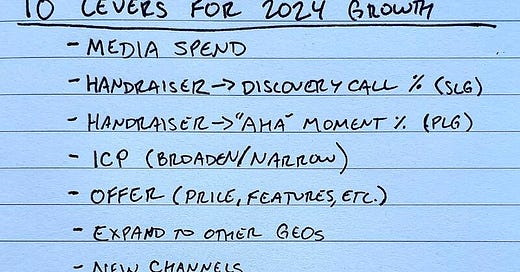 10 LEVERS FOR 2024 GROWTH
- MEDIA SPEND
- HANDRAISER → DISCOVERY CALL % (SLG)
- HANDRAISER → "AHA" MOMENT % (PLG)
- ICP (BROADEN/NARROW)
- OFFER (PRICE, FEATURES, ETC.)
- EXPAND TO OTHER GEOS
- NEW CHANNELS